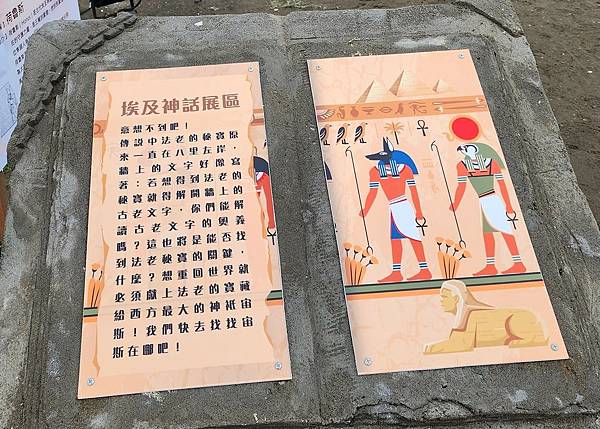 荷魯斯
埃及神話展區
意想不到吧！
傳說中法老的秘寶原
來一直在八里左岸，
牆上的文字好像寫
著：若想得到法老的
秘寶就得解開牆上的
古老文字，你們能解
讀古老文字的奧義
嗎？這也將是能否找
到法老秘寶的關鍵，
什麼？想重回世界就
必須獻上法老的寶藏
給西方最大的神祇宙
斯！我們快去找找宙
斯在哪吧！